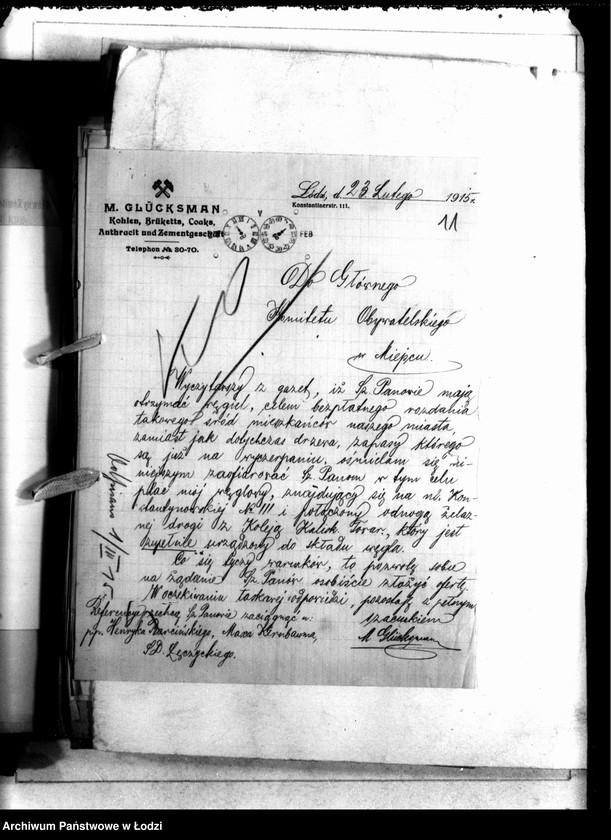 M. GLÜCKSMAN
Kohlen, Briketts, Cooks,
Anthrocit und Zementgeschäft
Telephon № 30-70.
Łódź, d. 23 Lutego 1915 r.
Konstantinerstr. 111.
11
FEB
Do Głównego
Komitetu Obywatelskiego
w Miejscu.
Wyczytawszy z gazet, iż Sz. Panowie mają
otrzymać węgiel, celem bezpłatnego rozdania
takowego śród mieszkańców naszego miasta,
zamiast jak dotychczas drzewa, zapasy którego
są już na wyczerpaniu, ośmielam się ni-
niejszym zaofiarować Sz. Panom w tym celu
plac mój węglowy, znajdujący się na ul. Kon-
stantynowskiej № 111 i połączony odnogą żelaz-
nej drogi z Koleją Kalisk. Towar., który jest
urządzony do składu węgla.
Co się tyczy warunków, to pozwolę sobie
na żądanie Sz. Panów osobiście złożyć ofertę.
W oczekiwaniu łaskawej odpowiedzi, pozostaję z pełnym
szacunkiem
M. Glücksman
Referencje zechcą Sz. Panowie zaciągnąć u:
pp. Henryka Marcińskiego, Maxa Kernbauma,
S. D. Łęczyckiego.
1/III 15
Archiwum Państwowe w Łodzi